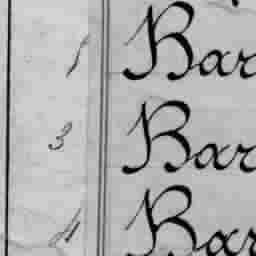 1 Bar
3 Bar
4 Bar